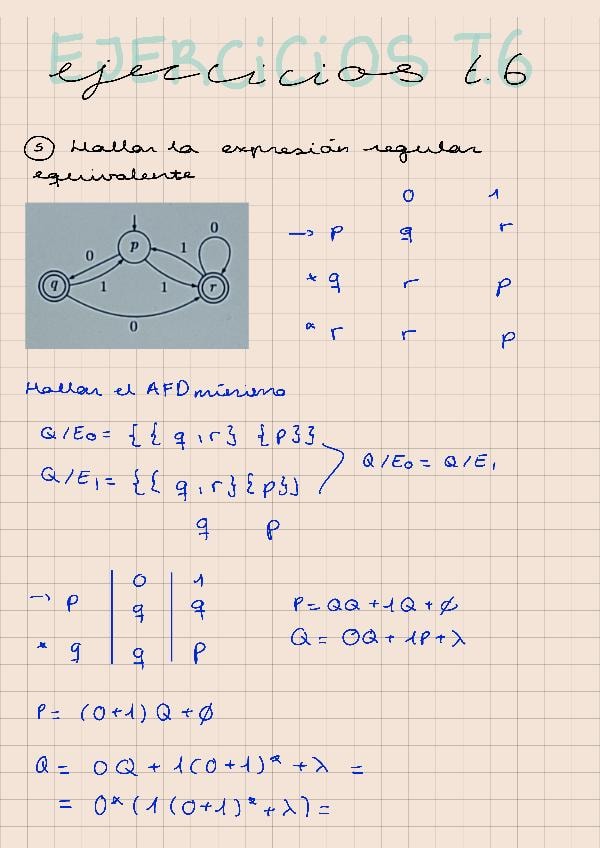 EJERCICIOS T.6
ejercicios t.6
⑤ Hallar la expresión regular
equivalente
0 1
→ p q r
* q r p
* r r p
0 p 1 0
q 1 1 r
0
Hallar el AFD mínimo
Q/E₀ = {{q,r} {p}}
Q/E₁ = {{q,r}{p}}
Q/E₀ = Q/E₁
q p
0 1
→ p q q
* q q p
P = 0Q + 1Q + ∅
Q = 0Q + 1P + λ
P = (0+1) Q + ∅
Q = 0Q + 1(0+1)* + λ =
= 0*(1(0+1)* + λ) =